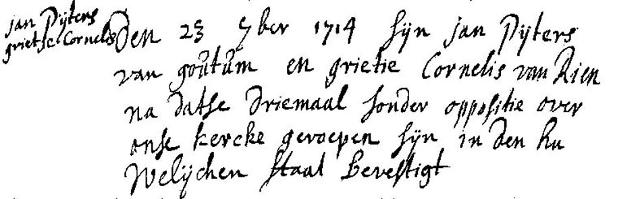 jan Pijters
grietie Cornelis
Den 23 9ber 1714 sijn jan Pijters
van goutum en grietie Cornelis van Rien
na datse driemaal sonder oppositie over
onse kercke geroepen sijn in den hu
welijcken staat Bevestigt